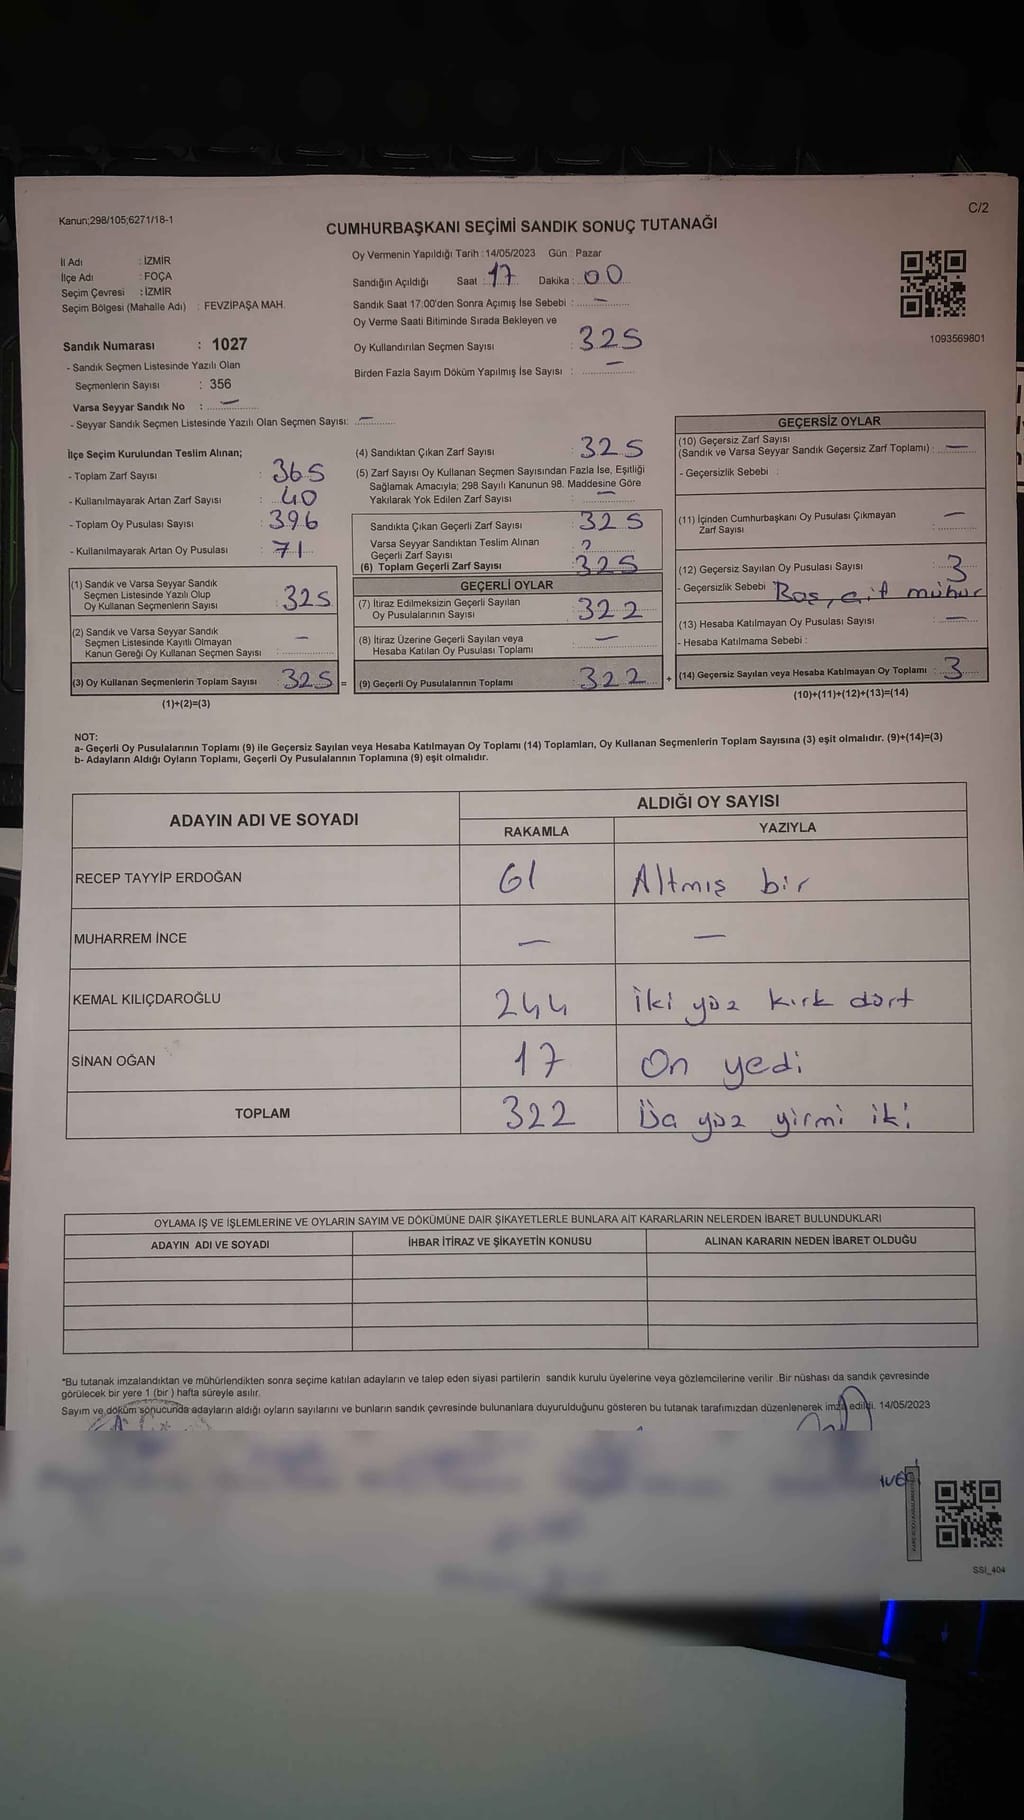 Kanun;298/105;6271/18-1
C/2
CUMHURBAŞKANI SEÇİMİ SANDIK SONUÇ TUTANAĞI
İl Adı : İZMİR
İlçe Adı : FOÇA
Seçim Çevresi : İZMİR
Seçim Bölgesi (Mahalle Adı) : FEVZİPAŞA MAH.
Oy Vermenin Yapıldığı Tarih : 14/05/2023 Gün : Pazar
Sandığın Açıldığı Saat : 17 Dakika : 00
Sandık Saat 17:00'den Sonra Açımış İse Sebebi : —
Oy Verme Saati Bitiminde Sırada Bekleyen ve
Oy Kullandırılan Seçmen Sayısı : 325
Birden Fazla Sayım Döküm Yapılmış İse Sayısı : —
1093569801
Sandık Numarası : 1027
- Sandık Seçmen Listesinde Yazılı Olan
Seçmenlerin Sayısı : 356
Varsa Seyyar Sandık No : —
- Seyyar Sandık Seçmen Listesinde Yazılı Olan Seçmen Sayısı: —
İlçe Seçim Kurulundan Teslim Alınan;
- Toplam Zarf Sayısı : 365
- Kullanılmayarak Artan Zarf Sayısı : 40
- Toplam Oy Pusulası Sayısı : 396
- Kullanılmayarak Artan Oy Pusulası : 71
(1) Sandık ve Varsa Seyyar Sandık
Seçmen Listesinde Yazılı Olup
Oy Kullanan Seçmenlerin Sayısı : 325
(2) Sandık ve Varsa Seyyar Sandık
Seçmen Listesinde Kayıtlı Olmayan
Kanun Gereği Oy Kullanan Seçmen Sayısı : —
(3) Oy Kullanan Seçmenlerin Toplam Sayısı : 325 =
(1)+(2)=(3)
(4) Sandıktan Çıkan Zarf Sayısı : 325
(5) Zarf Sayısı Oy Kullanan Seçmen Sayısından Fazla İse, Eşitliği
Sağlamak Amacıyla; 298 Sayılı Kanunun 98. Maddesine Göre
Yakılarak Yok Edilen Zarf Sayısı : —
Sandıkta Çıkan Geçerli Zarf Sayısı : 325
Varsa Seyyar Sandıktan Teslim Alınan
Geçerli Zarf Sayısı :
(6) Toplam Geçerli Zarf Sayısı : 325
GEÇERLİ OYLAR
(7) İtiraz Edilmeksizin Geçerli Sayılan
Oy Pusulalarının Sayısı : 322
(8) İtiraz Üzerine Geçerli Sayılan veya
Hesaba Katılan Oy Pusulası Toplamı : —
(9) Geçerli Oy Pusulalarının Toplamı : 322 +
GEÇERSİZ OYLAR
(10) Geçersiz Zarf Sayısı
(Sandık ve Varsa Seyyar Sandık Geçersiz Zarf Toplamı) : —
- Geçersizlik Sebebi :
(11) İçinden Cumhurbaşkanı Oy Pusulası Çıkmayan
Zarf Sayısı : —
(12) Geçersiz Sayılan Oy Pusulası Sayısı : 3
- Geçersizlik Sebebi : Boş, çift mühür
(13) Hesaba Katılmayan Oy Pusulası Sayısı : —
- Hesaba Katılmama Sebebi :
(14) Geçersiz Sayılan veya Hesaba Katılmayan Oy Toplamı : 3
(10)+(11)+(12)+(13)=(14)
NOT:
a- Geçerli Oy Pusulalarının Toplamı (9) ile Geçersiz Sayılan veya Hesaba Katılmayan Oy Toplamı (14) Toplamları, Oy Kullanan Seçmenlerin Toplam Sayısına (3) eşit olmalıdır. (9)+(14)=(3)
b- Adayların Aldığı Oyların Toplamı, Geçerli Oy Pusulalarının Toplamına (9) eşit olmalıdır.
ADAYIN ADI VE SOYADI
ALDIĞI OY SAYISI
RAKAMLA YAZIYLA
RECEP TAYYİP ERDOĞAN 61 Altmış bir
MUHARREM İNCE — —
KEMAL KILIÇDAROĞLU 244 İki yüz kırk dört
SİNAN OĞAN 17 On yedi
TOPLAM 322 Üç yüz yirmi iki
OYLAMA İŞ VE İŞLEMLERİNE VE OYLARIN SAYIM VE DÖKÜMÜNE DAİR ŞİKAYETLERLE BUNLARA AİT KARARLARIN NELERDEN İBARET BULUNDUKLARI
ADAYIN ADI VE SOYADI İHBAR İTİRAZ VE ŞİKAYETİN KONUSU ALINAN KARARIN NEDEN İBARET OLDUĞU
*Bu tutanak imzalandıktan ve mühürlendikten sonra seçime katılan adayların ve talep eden siyasi partilerin sandık kurulu üyelerine veya gözlemcilerine verilir .Bir nüshası da sandık çevresinde
görülecek bir yere 1 (bir ) hafta süreyle asılır.
Sayım ve döküm sonucunda adayların aldığı oyların sayılarını ve bunların sandık çevresinde bulunanlara duyurulduğunu gösteren bu tutanak tarafımızdan düzenlenerek imza edildi. 14/05/2023
SSI_404